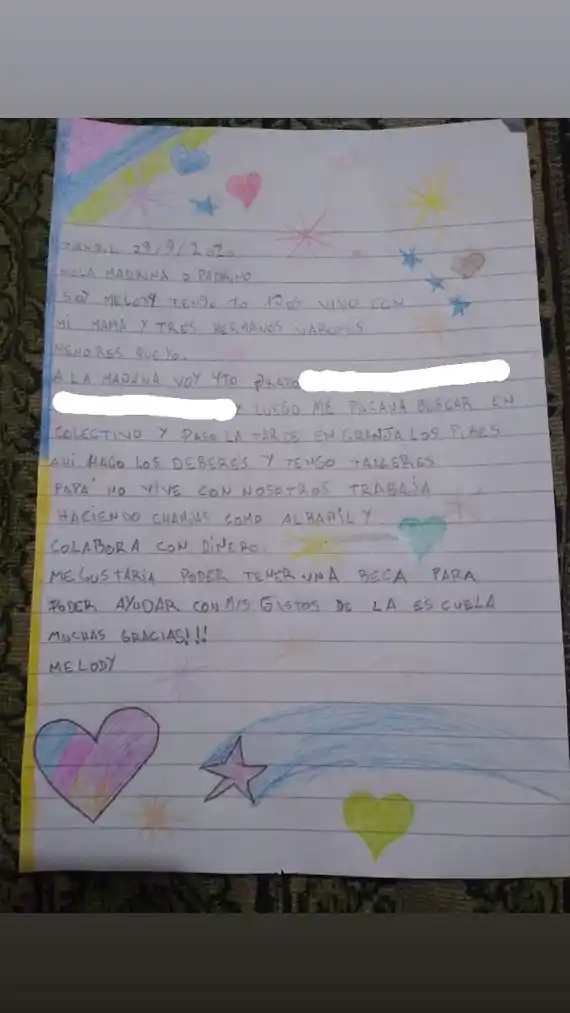 TANDIL 29/9/2020
HOLA MADRINA O PADRINO
SOY MELODY TENGO 10 AÑOS VIVO CON
MI MAMA Y TRES HERMANOS VARONES
MENORES QUE YO.
A LA MAÑANA VOY 4TO GRADO
Y LUEGO ME PASAN A BUSCAR EN
COLECTIVO Y PASO LA TARDE EN GRANJA LOS PIBES
AHI HAGO LOS DEBERES Y TENGO TALLERES
PAPÁ NO VIVE CON NOSOTROS TRABAJA
HACIENDO CHANGAS COMO ALBAÑIL Y
COLABORA CON DINERO.
ME GUSTARIA PODER TENER UNA BECA PARA
PODER AYUDAR CON MIS GASTOS DE LA ESCUELA
MUCHAS GRACIAS!!!
MELODY